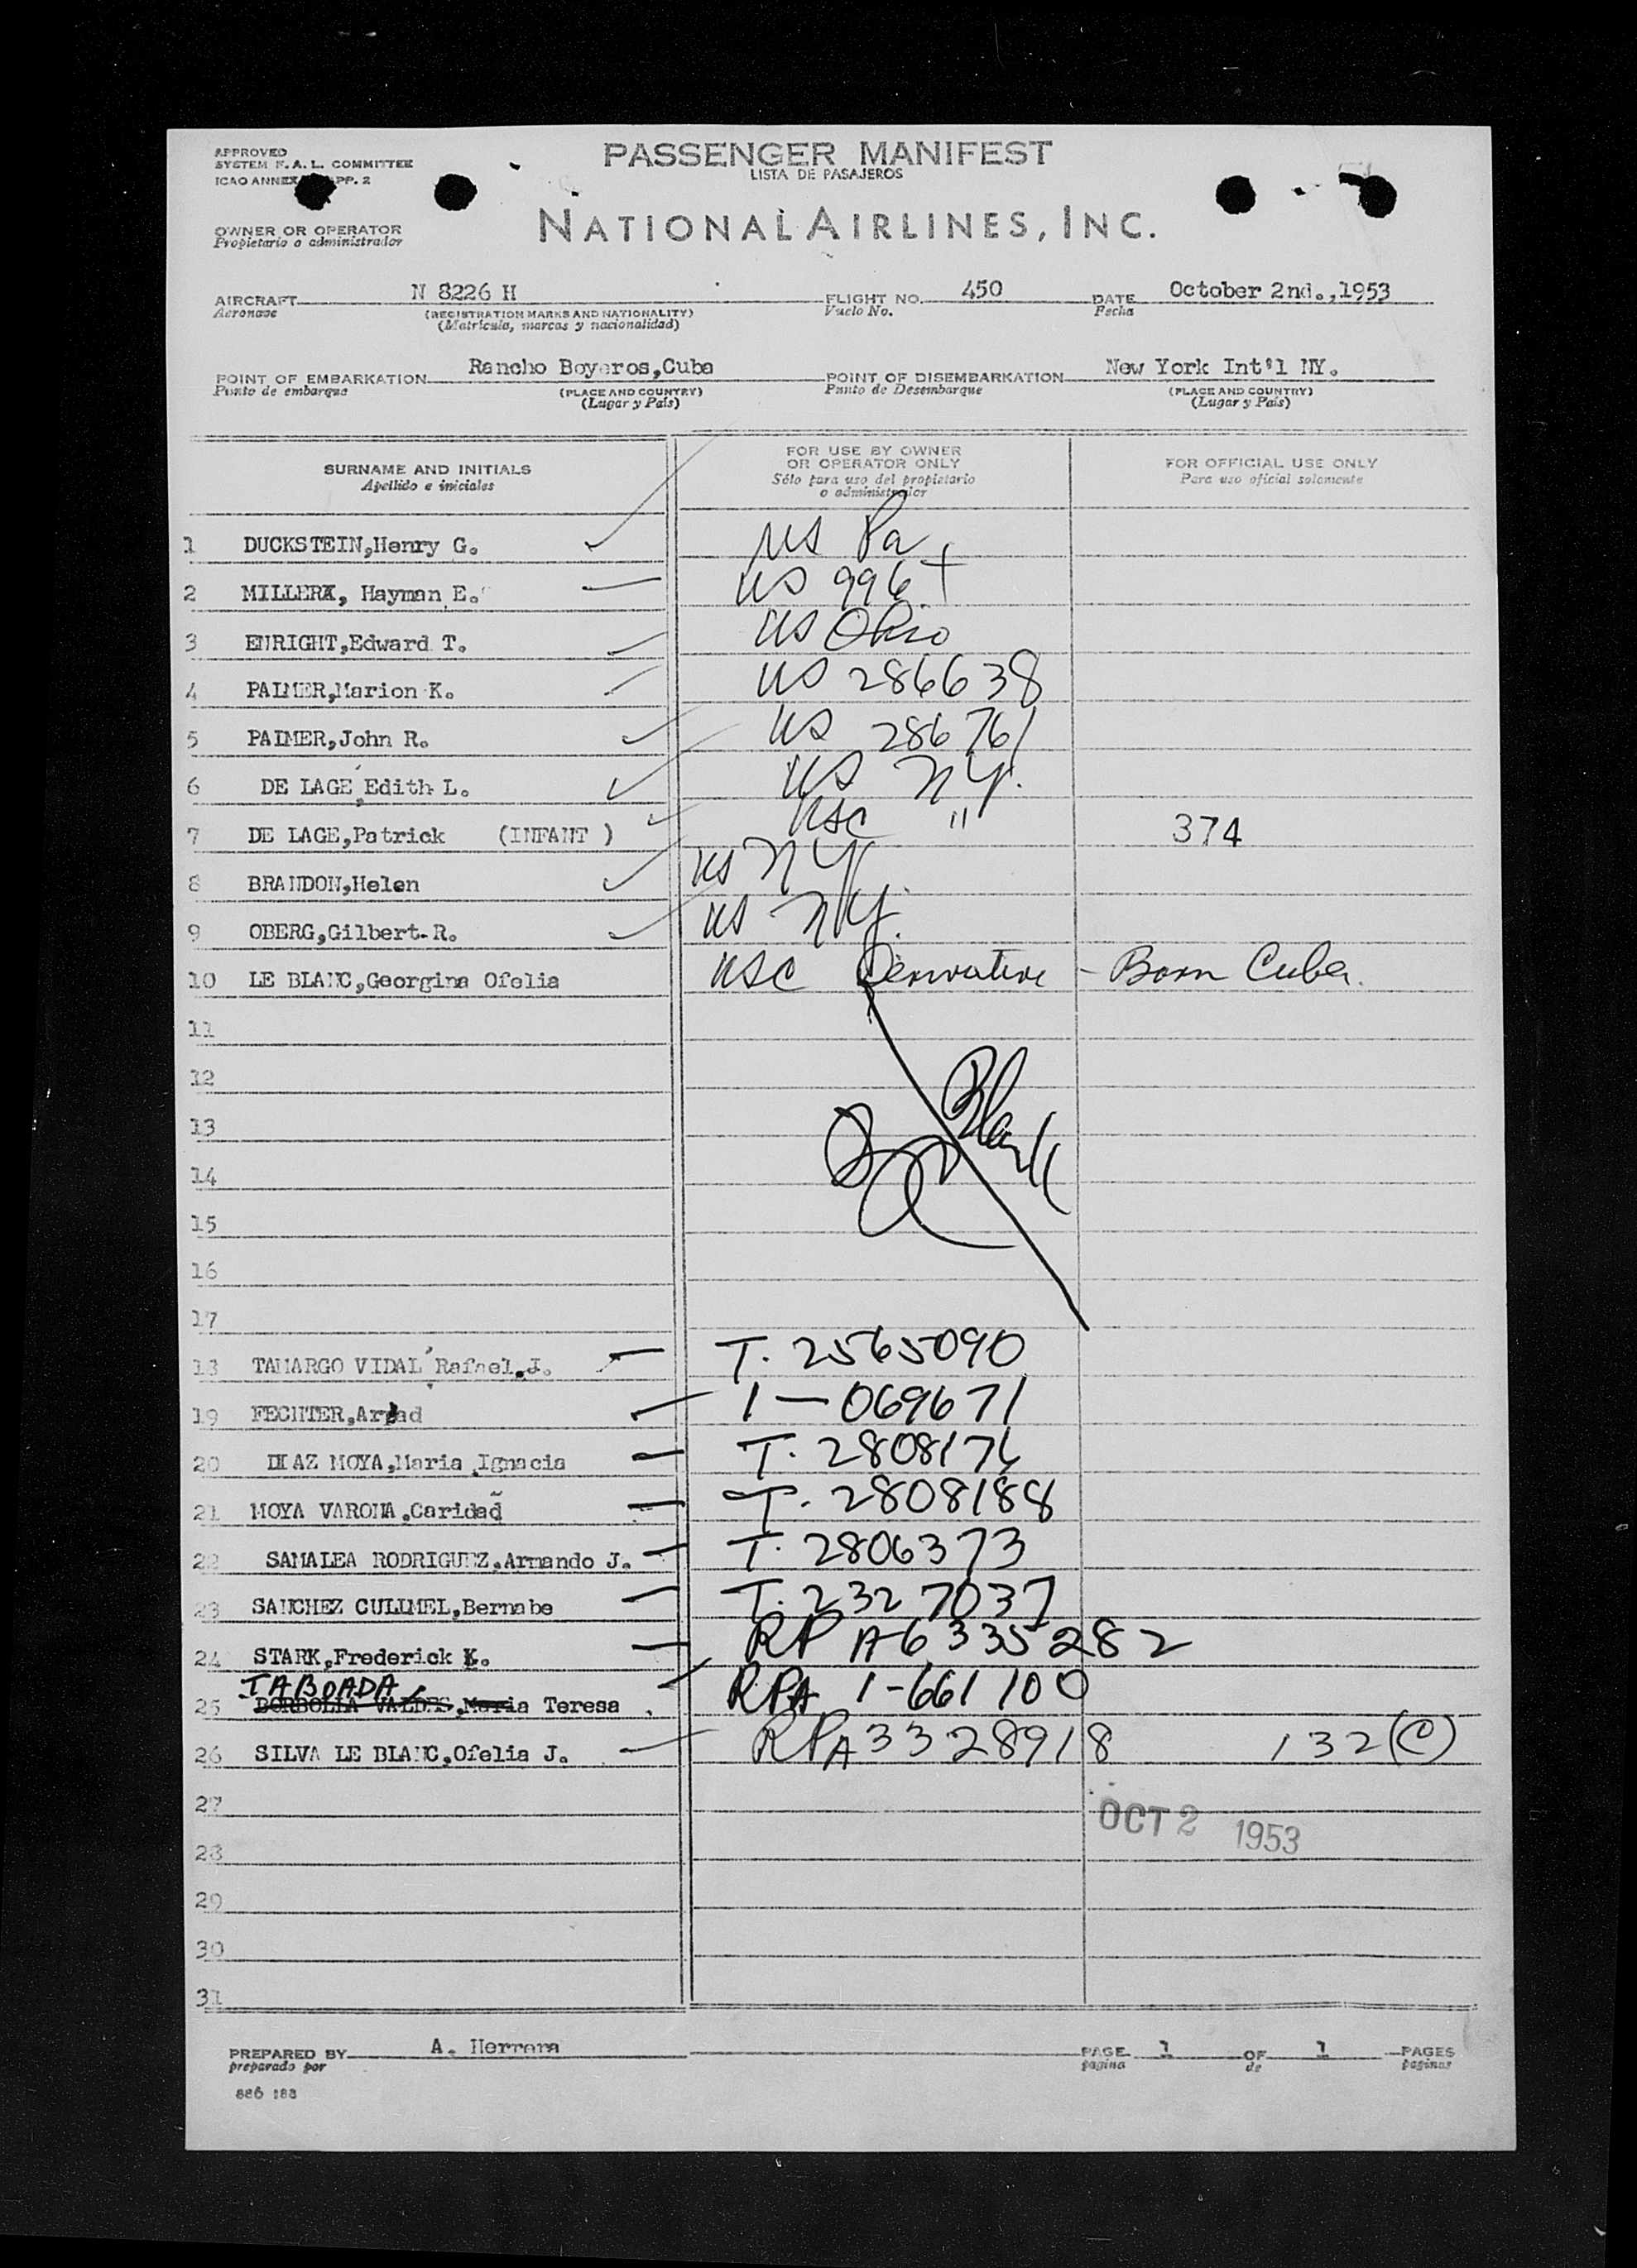 APPROVED
SYSTEM F.A.L. COMMITTEE
ICAO ANNEX PP. 2
PASSENGER MANIFEST
LISTA DE PASAJEROS
OWNER OR OPERATOR
Propietario o administrador
NATIONAL AIRLINES, INC.
AIRCRAFT N 8226 H FLIGHT NO. 450 DATE October 2nd.,1953
Aeronave (REGISTRATION MARKS AND NATIONALITY) Vuelo No. Fecha
(Matrícula, marcas y nacionalidad)
POINT OF EMBARKATION Rancho Boyeros,Cuba POINT OF DISEMBARKATION New York Int'l NY.
Punto de embarque (PLACE AND COUNTRY) Punto de Desembarque (PLACE AND COUNTRY)
(Lugar y País) (Lugar y País)
SURNAME AND INITIALS FOR USE BY OWNER OR OPERATOR ONLY FOR OFFICIAL USE ONLY
Apellido e iniciales Sólo para uso del propietario o administrador Para uso oficial solamente
1 DUCKSTEIN,Henry G. US Pa
2 MILLERX, Hayman E. US 996
3 ENRIGHT,Edward T. US Ohio
4 PALMER,Marion K. US 286638
5 PALMER,John R. US 286761
6 DE LAGE,Edith L. US NY.
7 DE LAGE,Patrick (INFANT ) USC " 374
8 BRANDON,Helen US NY
9 OBERG,Gilbert R. US NY.
10 LE BLANC,Georgina Ofelia USC Derivative - Born Cuba.
11
12
Blank
13
14
15
16
17
18 TAMARGO VIDAL Rafael.J. T. 2565090
19 FECHTER,Arpad 1-069671
20 DIAZ MOYA,Maria Ignacia T. 2808176
21 MOYA VARONA,Caridad T. 2808188
22 SAMALEA RODRIGUEZ,Armando J. T. 2806373
23 SANCHEZ CULLMEL,Bernabe T. 2327037
24 STARK,Frederick K. RP A-6335282
TABOADA
25 BORBOLLA VALDES,Maria Teresa RPA 1-661100
26 SILVA LE BLANC,Ofelia J. RPA 3328918 132(C)
27
OCT 2 1953
28
29
30
31
PREPARED BY A. Herrera PAGE 1 OF 1 PAGES
preparado por pagina de paginas
886 188